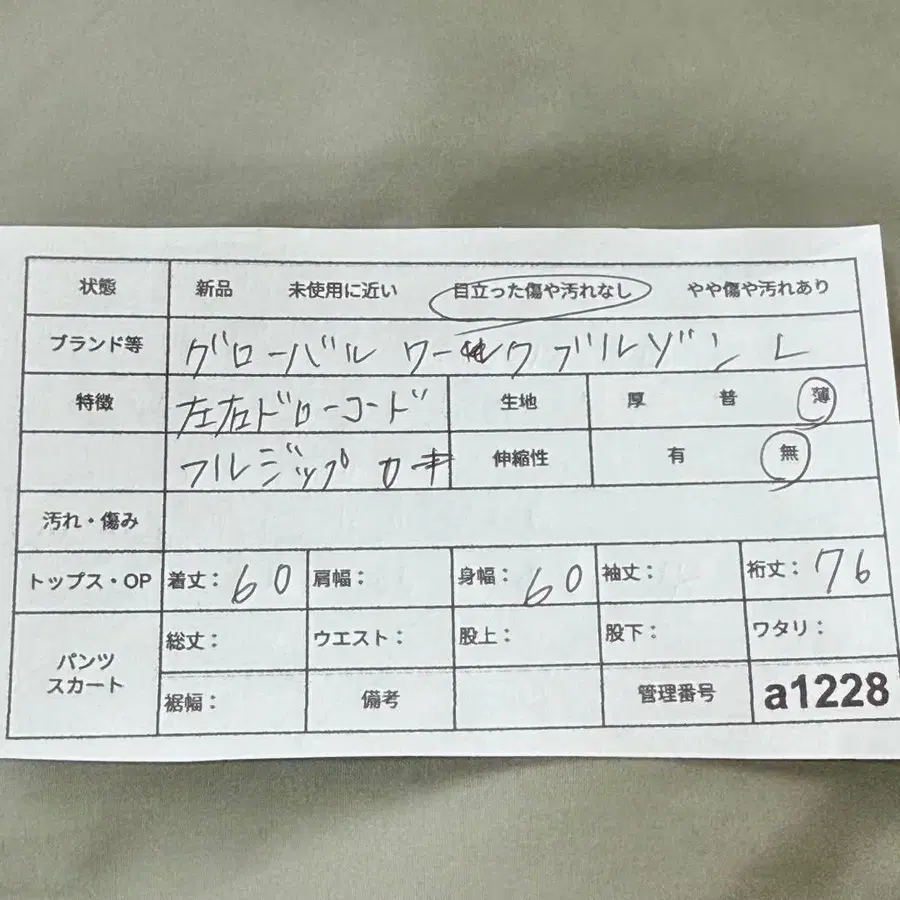 状態 新品 未使用に近い 目立った傷や汚れなし やや傷や汚れあり
ブランド等 グローバル ワーク ブルゾン L
特徴 左右ドローコード 生地 厚 普 薄
フルジップ カーキ 伸縮性 有 無
汚れ・傷み
トップス・OP 着丈：60 肩幅： 身幅：60 袖丈： 裄丈：76
パンツ スカート 総丈： ウエスト： 股上： 股下： ワタリ：
裾幅： 備考 管理番号 a1228